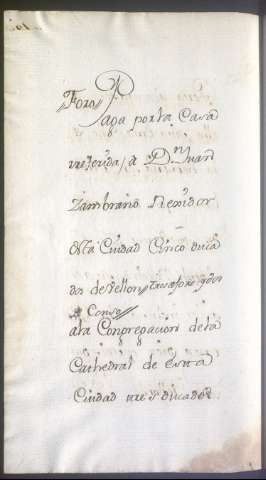 Foro//
Paga por la Casa
referida, a D.n Juan
Zambrano Rexidor
desta Ciudad Cinco duca
dos de Vellon//
Censo//
a la Congregacion de la
Cathedral de Esta
Ciudad tres ducados